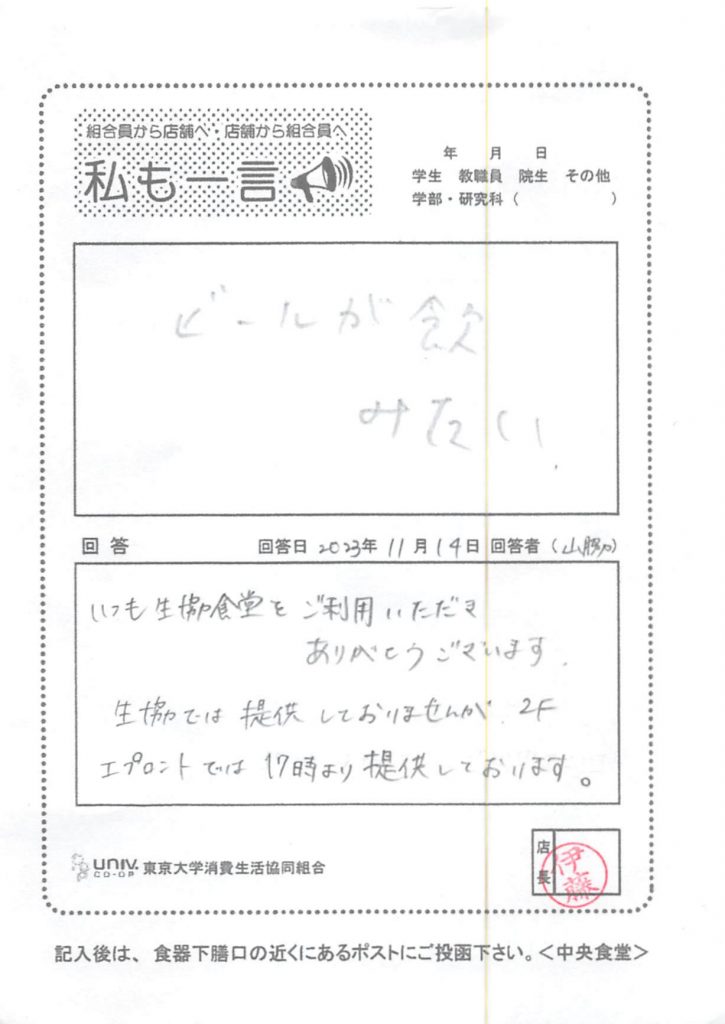 組合員から店舗へ・店舗から組合員へ
私も一言
年 月 日
学生 教職員 院生 その他
学部・研究科（ ）
ビールが飲
みたい
回答 回答日 2023年 11月 14日 回答者（山脇）
いつも生協食堂をご利用いただき
ありがとうございます。
生協では提供しておりませんが、2F
エプロントでは17時より提供しております。
店長
伊藤
UNIV. CO-OP 東京大学消費生活協同組合
記入後は、食器下膳口の近くにあるポストにご投函下さい。＜中央食堂＞